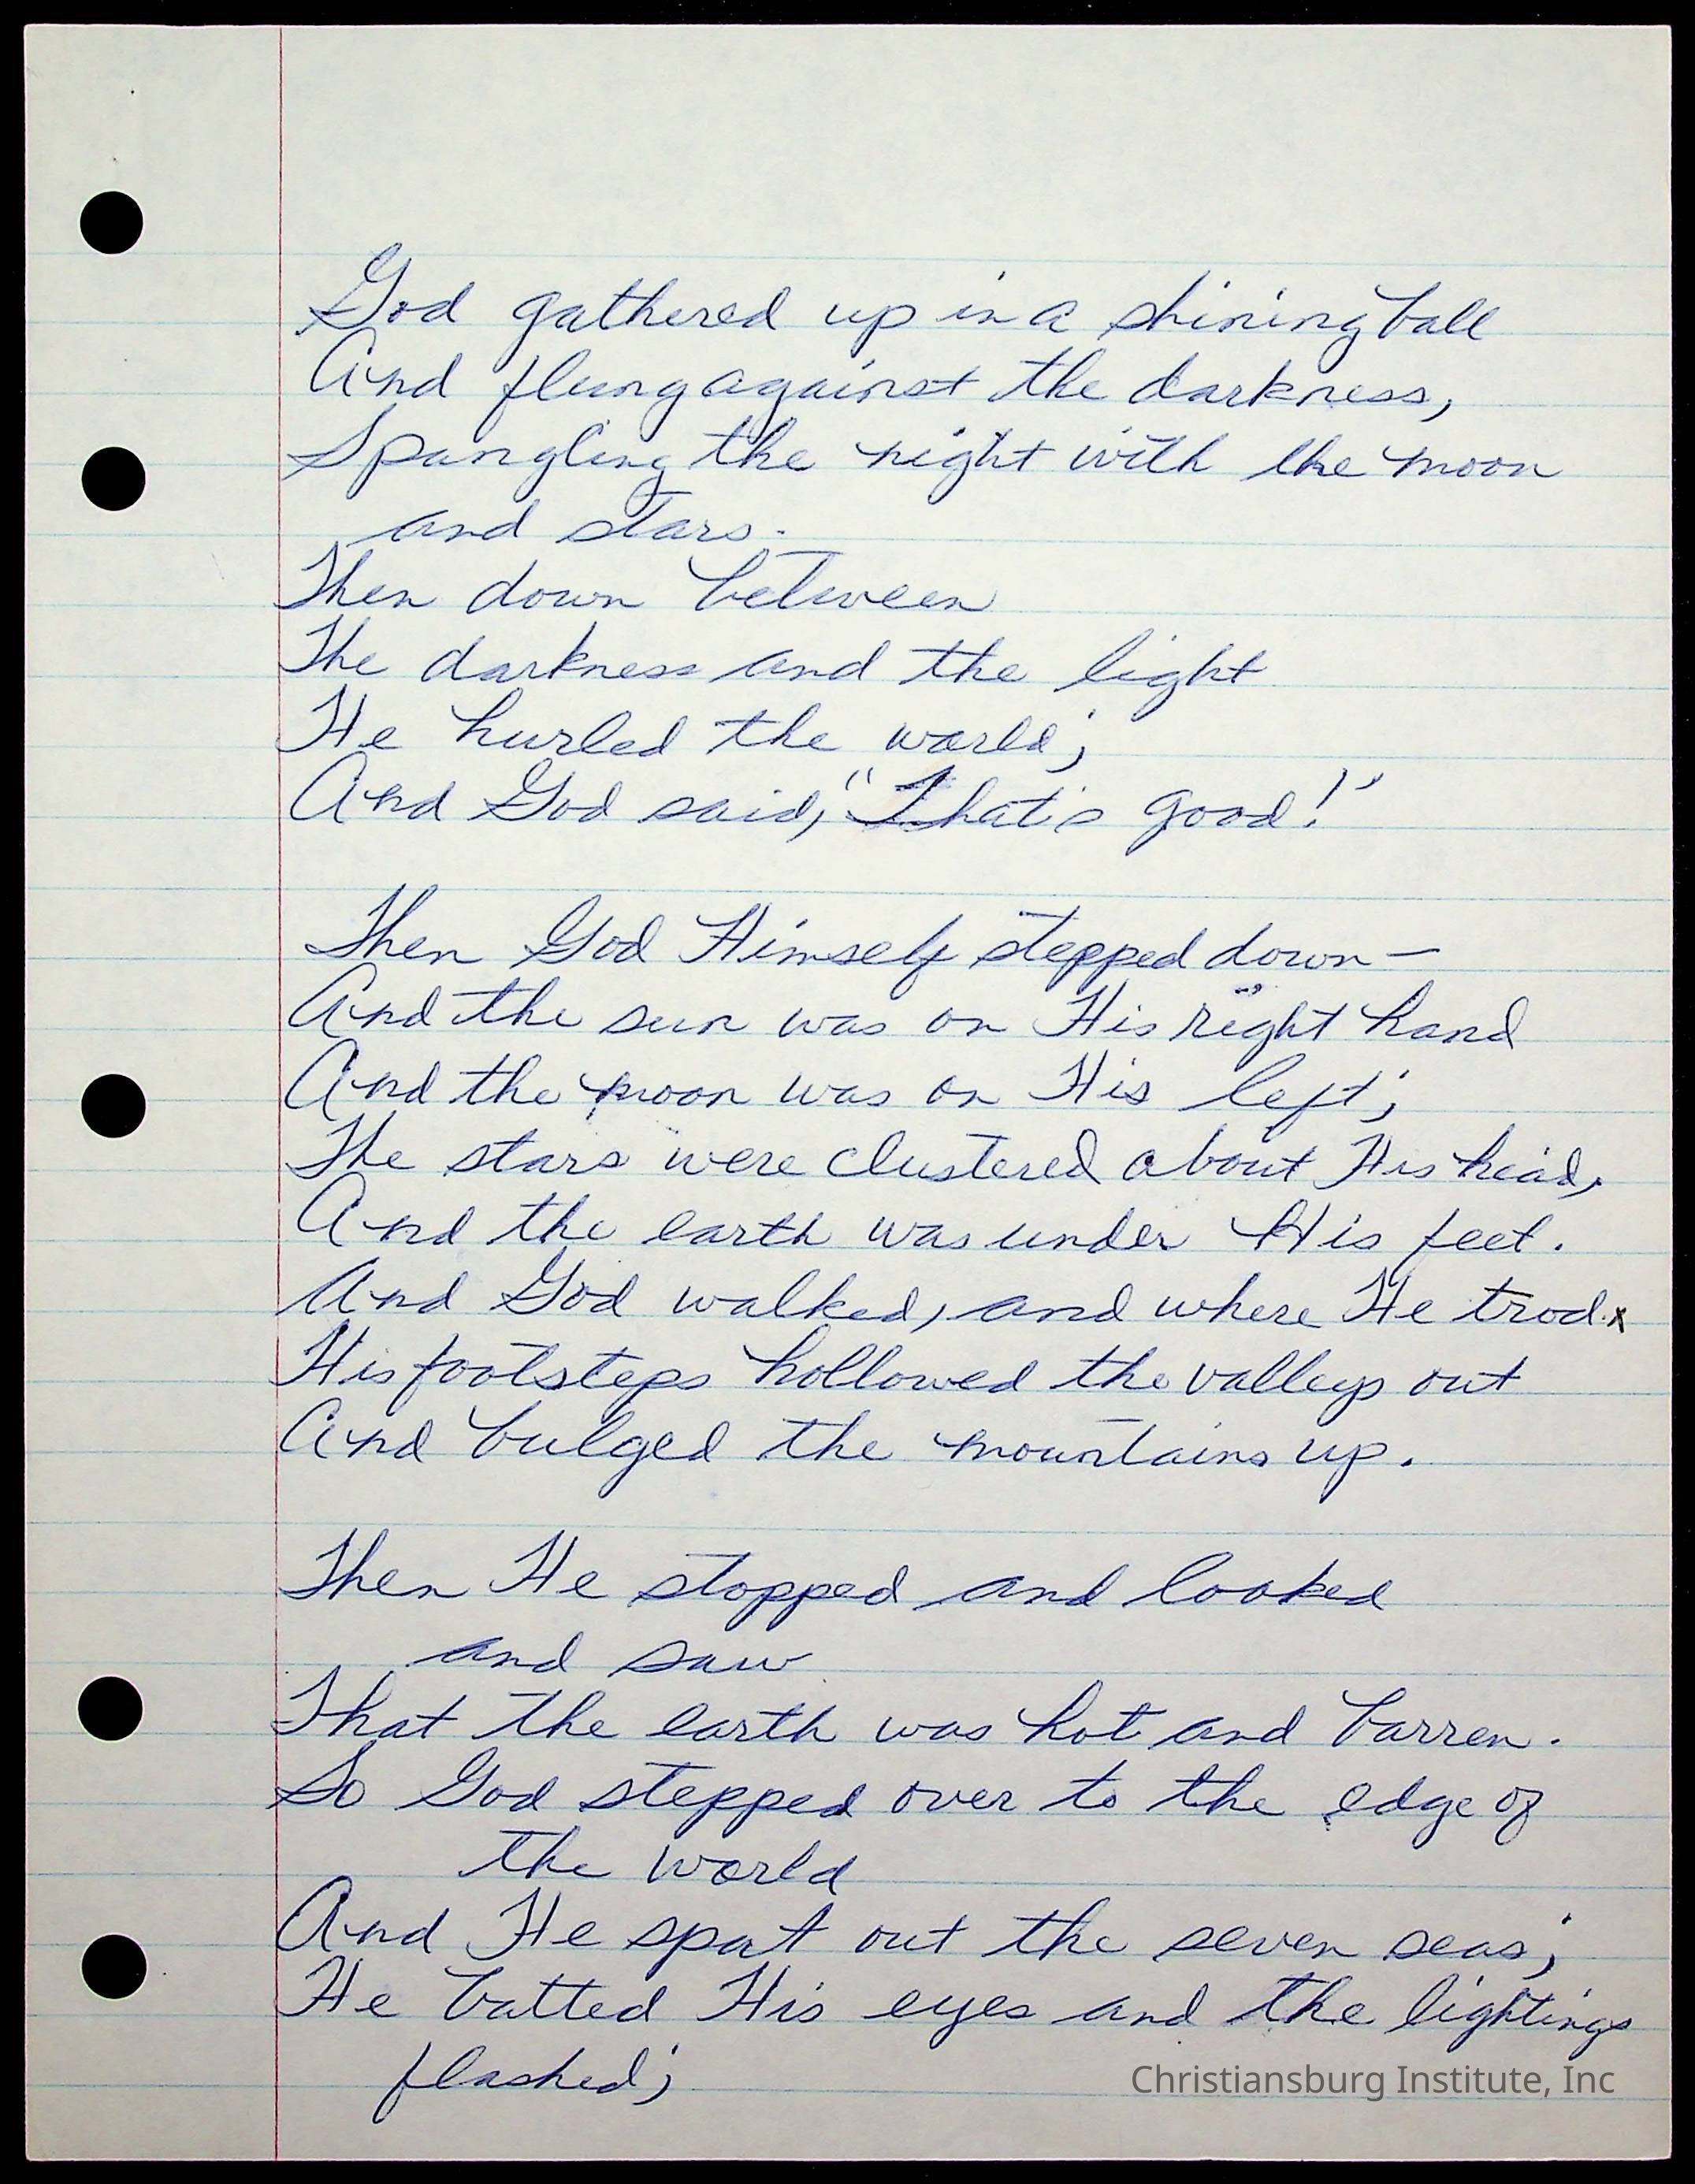 God gathered up in a shining ball
And flung against the darkness,
Spangling the night with the moon
and stars.
Then down between
The darkness and the light
He hurled the world;
And God said, "That's good!"
Then God Himself stepped down—
And the sun was on His right hand
And the moon was on His left;
The stars were clustered about His head,
And the earth was under His feet.
And God walked, and where He trod.x
His footsteps hollowed the valleys out
And bulged the mountains up.
Then He stopped and looked
and saw
That the earth was hot and barren.
So God stepped over to the edge of
the world
And He spat out the seven seas;
He batted His eyes and the lightings
flashed;
Christiansburg Institute, Inc